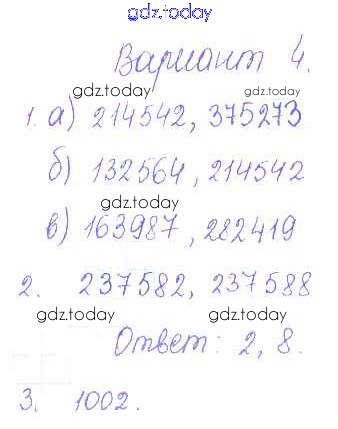 gdz.today
Вариант 4.
gdz.today gdz.today
1. а) 214542, 375273
б) 132564, 214542
gdz.today
в) 163987, 282419
2. 237582, 237588
gdz.today gdz.today
Ответ: 2, 8.
3. 1002.